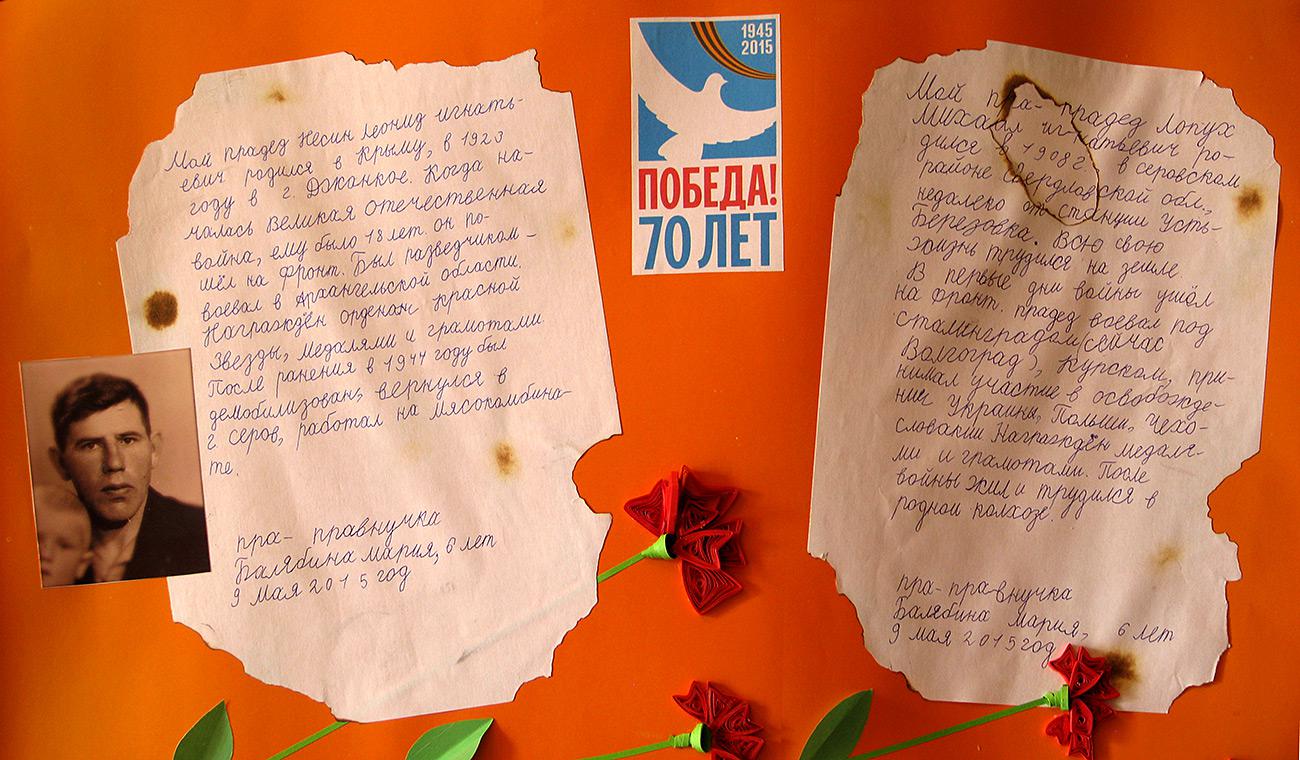 Мой прадед Несин Леонид Игнать-
евич родился в Крыму, в 1923
году в г. Джанкое. Когда на-
чалась Великая Отечественная
война, ему было 18 лет. он по-
шёл на фронт. Был разведчиком -
воевал в Архангельской области.
Награждён орденом Красной
Звезды, медалями и грамотами.
После ранения в 1944 году был
демобилизован, вернулся в
г. Серов, работал на мясокомбина-
те.
пра- правнучка
Балябина Мария, 6 лет
9 Мая 2015 год
1945
2015
ПОБЕДА!
70 ЛЕТ
Мой пра- прадед Лопух
Михаил Игнатьевич ро-
дился в 1908 г. в Серовском
районе Свердловской обл.,
недалеко от станции Усть-
Берёзовка. Всю свою
жизнь трудился на земле.
В первые дни войны ушёл
на фронт. прадед воевал под
Сталинградом/сейчас
Волгоград), Курском, при-
нимал участие в освобожде-
нии Украины, Польши, Чехо-
словакии Награждён медаля-
ми и грамотами. После
войны жил и трудился в
родном колхозе.
пра- правнучка
Балябина Мария, 6 лет
9 мая 2015 год